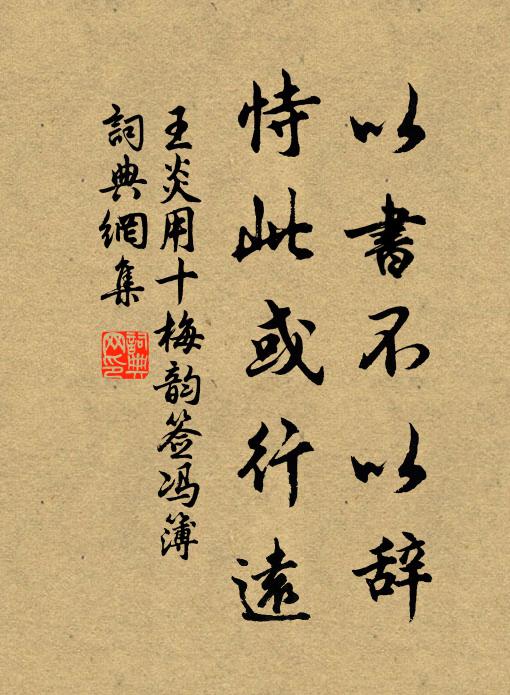 以書不以辞
恃此或行遠
王炎用十梅韵签冯簿
詞典網集
詞典
网印